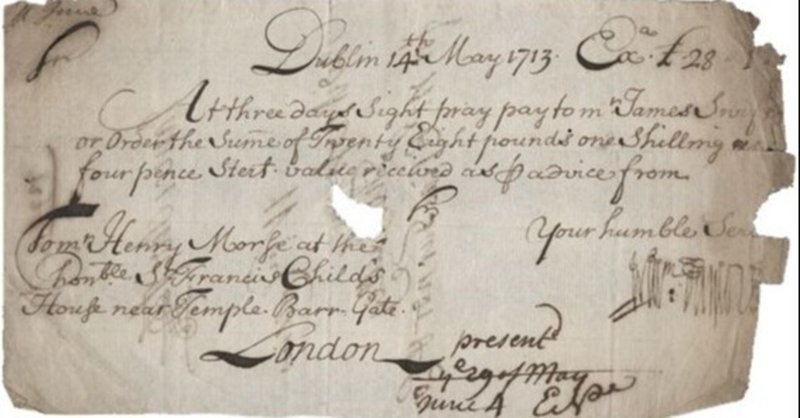 Dublin 14th May 1713. Exa. £ 28
Sr
At three days Sight pray pay to mr James
or Order the Sume of Twenty Eight pounds one Shilling
four pence Sterl. value received as p advice from
Sr
Your humble Ser
To mr Henry Morse at the
Honble Sr Francis Child's
House near Temple. Barr. Gate.
London
presentd
ye 29 of May
June 4